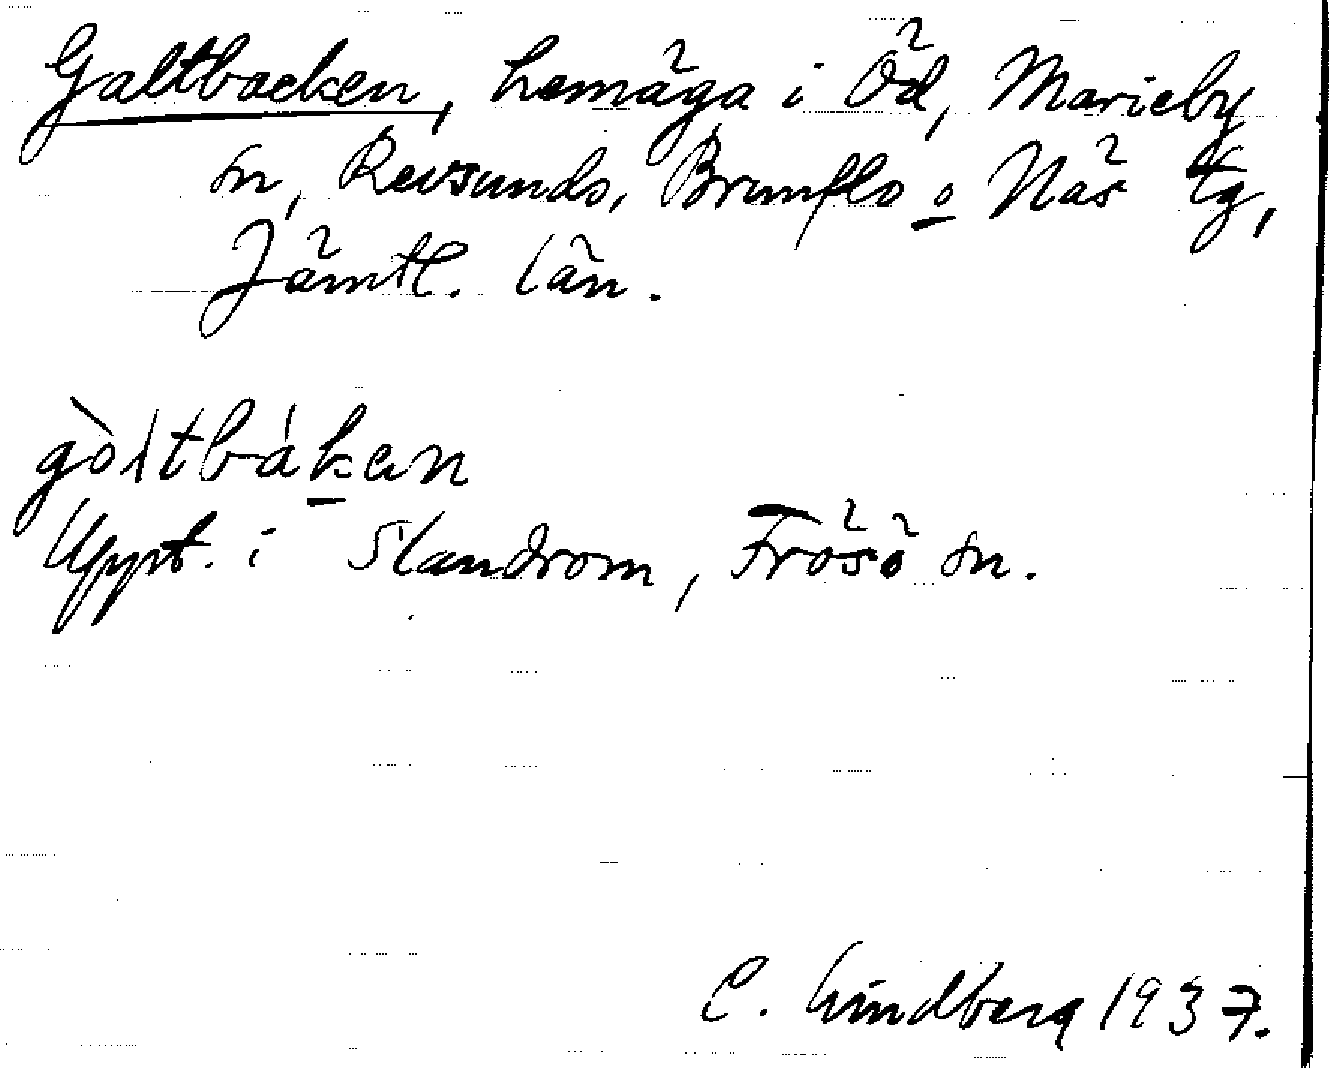 Galtbacken, hemäga i Öd, Marieby
sn, Revsunds, Brunflo o Näs tg,
Jämtl. län.
gòltbákan
Uppt. i Slandrom, Frösö sn.
C. Lindberg 1937.